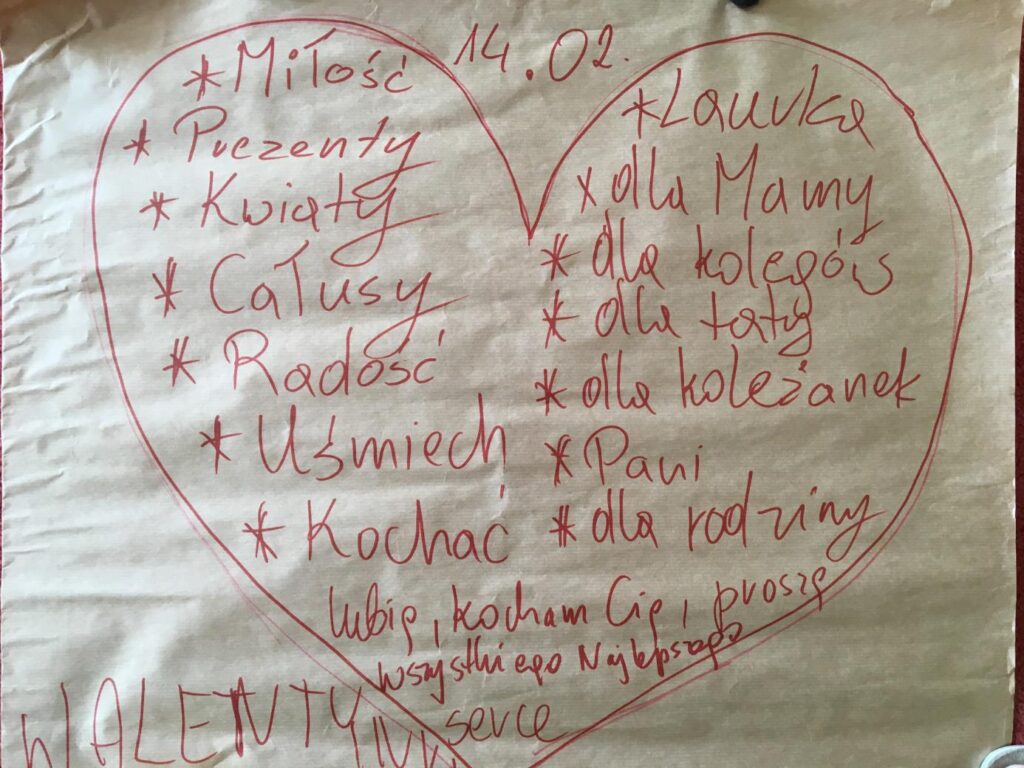 14.02.
* Miłość
* Prezenty
* Kwiaty
* Całusy
* Radość
* Uśmiech
* Kochać
* Laurka
x dla Mamy
* dla kolegów
* dla taty
* dla koleżanek
* Pani
* dla rodziny
lubię, kocham Cię, proszę
wszystkiego Najlepszego
serce
WALENTYNK